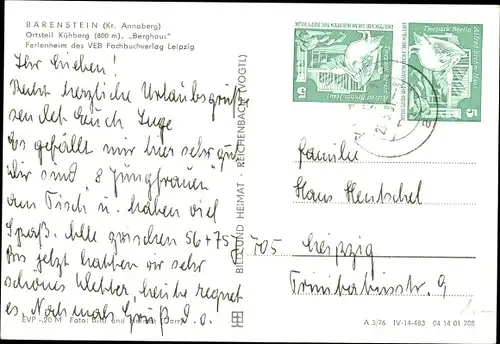 BÄRENSTEIN (Kr. Annaberg)
Ortsteil Kühberg (800 m), „Berghaus"
Ferienheim des VEB Fachbuchverlag Leipzig
Ihr Lieben!
Recht herzliche Urlaubsgrüße
sendet Euch Inge
Es gefällt mir hier sehr gut
Wir sind 8 "Jungfrauen"
am Tisch u. haben viel
Spaß. Alle zwischen 56 + 75 J
Bis jetzt hatten wir sehr
schönes Wetter, heute regnet
es. Nochmals Gruß I. O.
EVP -,20 M Foto: Bild und Heimat
BILD UND HEIMAT · REICHENBACH (VOGTL)
DEUTSCHE DEMOKRATISCHE REPUBLIK
Tierpark Berlin
Alfred-Brehm-Haus
5
Tierpark Berlin
Alfred-Brehm-Haus
5
Familie
Hans Hentschel
705 Leipzig
Trinitatisstr. 9
1.-
A 3/76 IV-14-483 04 14 01 788